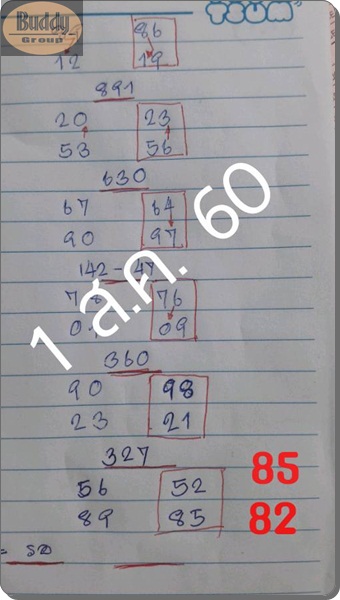 Buddy
Group
TSUM
86
12 19
891
20 23
53 56
630
67 64
90 97
142 - 47
76
09
360
90 98
23 21
327
56 52
89 85
= รอ
1 ส.ค. 60
85
82